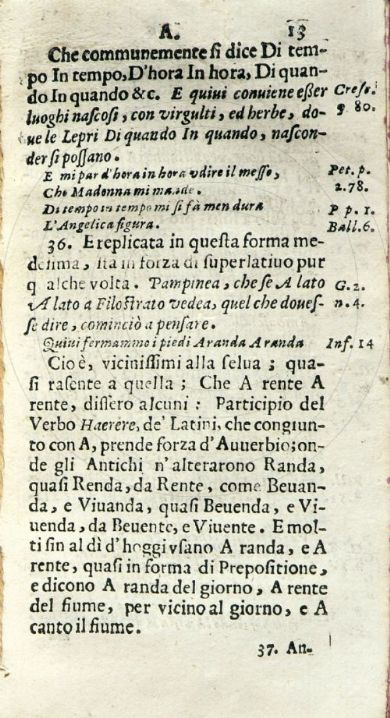 A. 13
Che communemente si dice Di tem-
po In tempo, D'hora In hora, Di quan-
do In quando &c. E quiui conuiene eßer Cresc.
luoghi nascosi, con virgulti, ed herbe, do- 9 80.
ue le Lepri Di quando In quando, nascon-
der si possano.
E mi par d'hora in hora vdire il messo, Pet. p.
Che Madonna mi mande. 2.78.
Di tempo in tempo mi si fà men dura P p. 1.
L'Angelica figura. Ball. 6.
36. E replicata in questa forma me-
desima, stà in forza di superlatiuo pur
q alche volta. Pampinea, che se A lato G. 2.
A lato a Filostrato vedea, quel che doues- n. 4.
se dire, cominciò a pensare.
Quiui fermammo i piedi A randa A randa Inf. 14
Cioè, vicinissimi alla selua; qua-
si rasente a quella; Che A rente A
rente, dissero alcuni: Participio del
Verbo Haerere, de' Latini, che congiun-
to con A, prende forza d'Auuerbio; on-
de gli Antichi n'alterarono Randa,
quasi Renda, da Rente, come Beuan-
da, e Viuanda, quasi Beuenda, e Vi-
uenda, da Beuente, e Viuente. E mol-
ti sin al dì d'hoggi vsano A randa, e A
rente, quasi in forma di Prepositione,
e dicono A randa del giorno, A rente
del fiume, per vicino al giorno, e A
canto il fiume.
37. An-